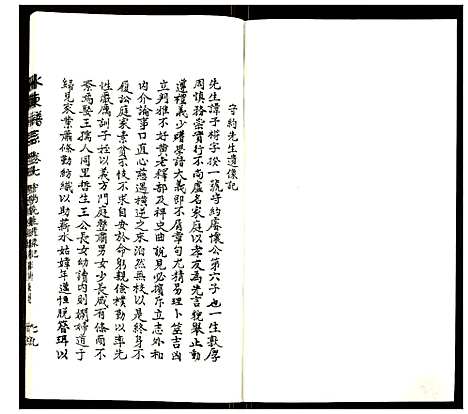 守約先生遺像記
先生諱子梓字授一號守約睿懷公第六子也一生敦厚
周慎務崇實行不尚虛名家庭以孝友為先言貌舉止動
遵禮義少嗜學諳大義即不屑章句尤精易理卜筮吉凶
立判雅不好黃老釋部及稗史曲說見必擯斥立志外和
內介論事口直心慈遇橫逆之來泊然無校以是終身不
履訟庭家素貧不忮不求自安於命躬親儉樸勤以率先
性嚴厲訓子姪以義方門庭整肅男女少長咸有條而不
紊為娶王孺人同里哲生三公長女幼讀內則嫻婦道于
歸見家業蕭條勤紡織以助薪水姑嫜年邁恒脫簪珥以